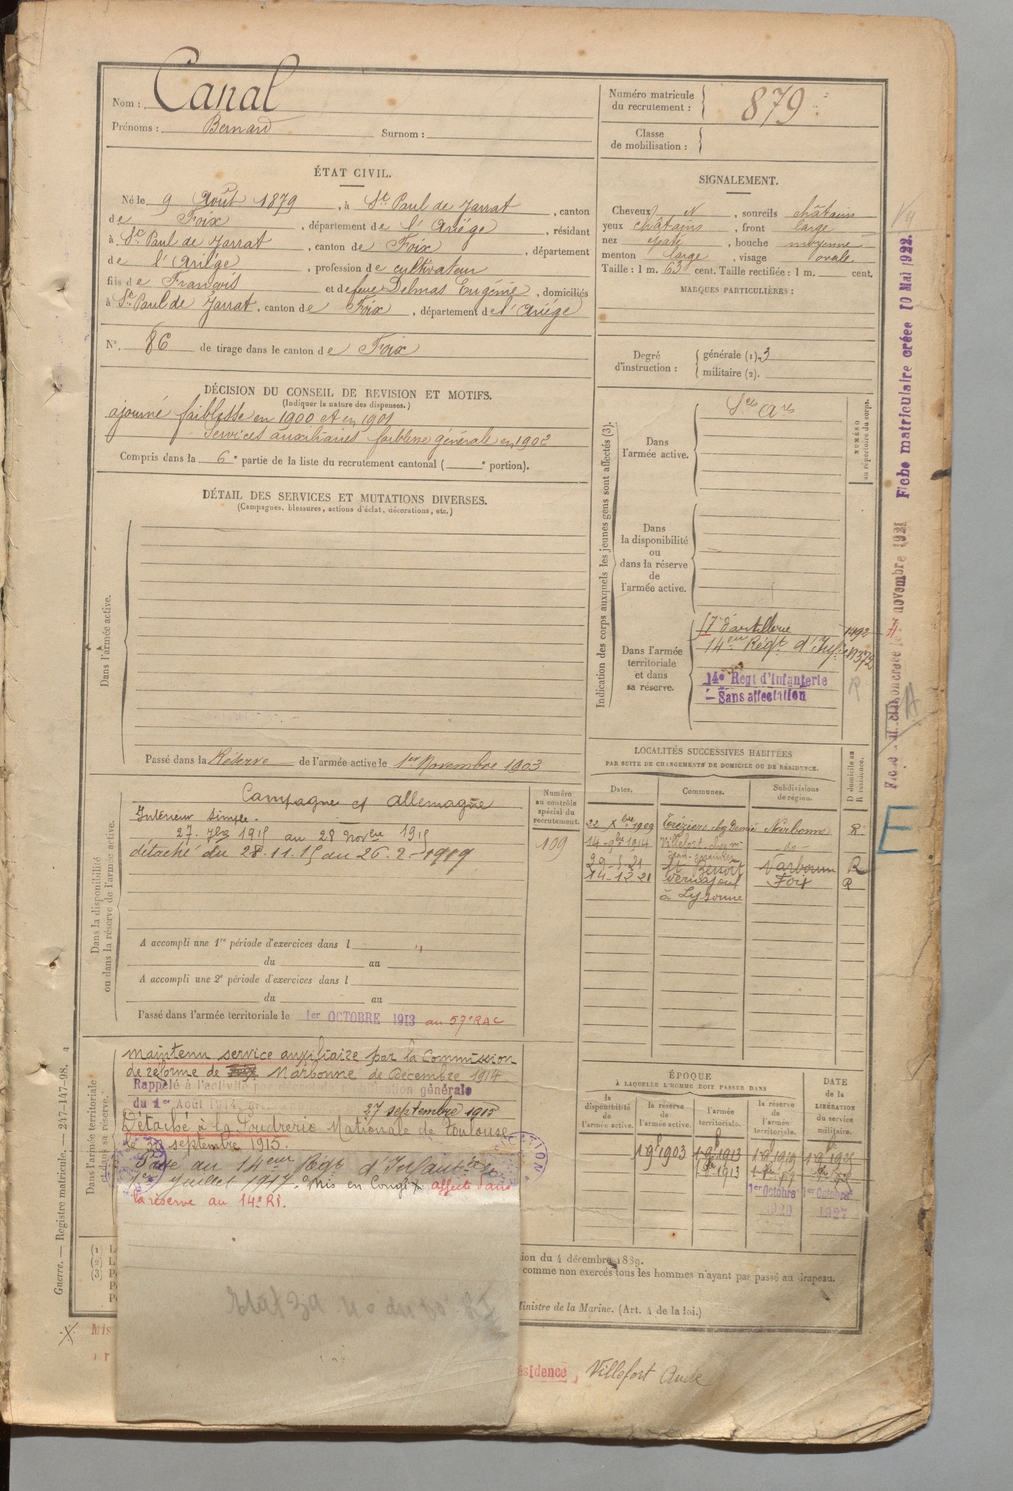 Nom : Canal
Prénoms : Bernard Surnom :
Numéro matricule du recrutement : 879
Classe de mobilisation :
ÉTAT CIVIL.
Né le 9 Août 1879, à St Paul de Jarrat, canton
de Foix, département de l'Ariége, résidant
à St Paul de Jarrat, canton de Foix, département
de l'Ariége, profession de cultivateur
fils de François et de feue Delmas Eugénie, domiciliés
à St Paul de Jarrat, canton de Foix, département de l'Ariége
N° 86 de tirage dans le canton de Foix
SIGNALEMENT.
Cheveux, sourcils châtains
yeux châtains, front large
nez épaté, bouche moyenne
menton large, visage ovale
Taille : 1 m. 63 cent. Taille rectifiée : 1 m. cent.
MARQUES PARTICULIÈRES :
Degré d'instruction : générale (1). 3
militaire (2).
DÉCISION DU CONSEIL DE REVISION ET MOTIFS.
(Indiquer la nature des dispenses.)
ajourné faiblesse en 1900 et en 1901
Services auxiliaires faiblesse générale en 1902
Compris dans la 6e partie de la liste du recrutement cantonal ( e portion).
DÉTAIL DES SERVICES ET MUTATIONS DIVERSES.
(Campagnes, blessures, actions d'éclat, décorations, etc.)
Dans l'armée active.
Passé dans la Réserve de l'armée active le 1er Novembre 1903
Indication des corps auxquels les jeunes gens sont affectés (3).
NUMÉRO au répertoire du corps.
Dans l'armée active.
Dans la disponibilité ou dans la réserve de l'armée active.
Dans l'armée territoriale et dans sa réserve.
57 d'artillerie 1492
14eme Régt d'Infie
14e Regt d'Infanterie
- Sans affectation
R
Fiche matriculaire créée 10 Mai 1922.
novembre 1921
A
E
Dans la disponibilité ou dans la réserve de l'armée active.
Campagne ct Allemagne
Intérieur simple.
27. 7bre 1915 au 28 Novbre 1915
détaché du 28.11.15 au 26.2-1919
Numéro au contrôle spécial du recrutement.
109
A accompli une 1re période d'exercices dans l
du au
A accompli une 2e période d'exercices dans l
du au
Passé dans l'armée territoriale le 1er OCTOBRE 1913 au 57e RAC
LOCALITÉS SUCCESSIVES HABITÉES
PAR SUITE DE CHANGEMENTS DE DOMICILE OU DE RÉSIDENCE.
Dates. Communes. Subdivisions de région. D domicile ou R résidence.
22 Xbre 1909 Narbonne R.
14-9bre 1914 Villefort -do-
29-5-21 St Benoit Narbonne R
14-12 21 Foix R
Dans l'armée territoriale et dans sa réserve.
Maintenu service auxiliaire par la Commission
de réforme de Narbonne de Décembre 1914
Rappelé à l'activité mobilisation générale
du 1er Août 1914. 27 septembre 1915
Détaché à la Poudrerie Nationale de Toulouse
le septembre 1915.
Passé au 14eme Régt d'Infanterie
1er Juillet 1917. Mis en Congé affecté dans
la réserve au 14e RI.
ÉPOQUE
À LAQUELLE L'HOMME DOIT PASSER DANS
la disponibilité de l'armée active. la réserve de l'armée active. l'armée territoriale. la réserve de l'armée territoriale.
DATE de la LIBÉRATION du service militaire.
1 9bre 1903
1er Octobre 1er Octobre
1920 1927
Guerre. — Registre matricule. — 247-147-98.
(1)
(2)
(3)
ion du 4 décembre 1889.
comme non exercés tous les hommes n'ayant par passé au drapeau.
Ministre de la Marine. (Art. 4 de la loi.)
Mis
ésidence, Villefort Aude